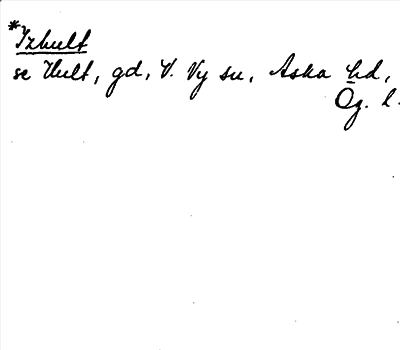 *Yxhult
se Hult, gd, V. Vy sn, Aska hd,
Ög. l.